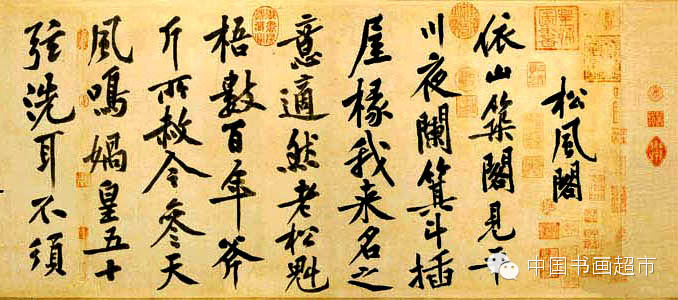 松風閣
依山築閣見平
川夜闌箕斗插
屋椽我来名之
意適然老松魁
梧數百年斧
斤所赦今參天
風鳴媧皇五十
弦洗耳不須
中国书画超市